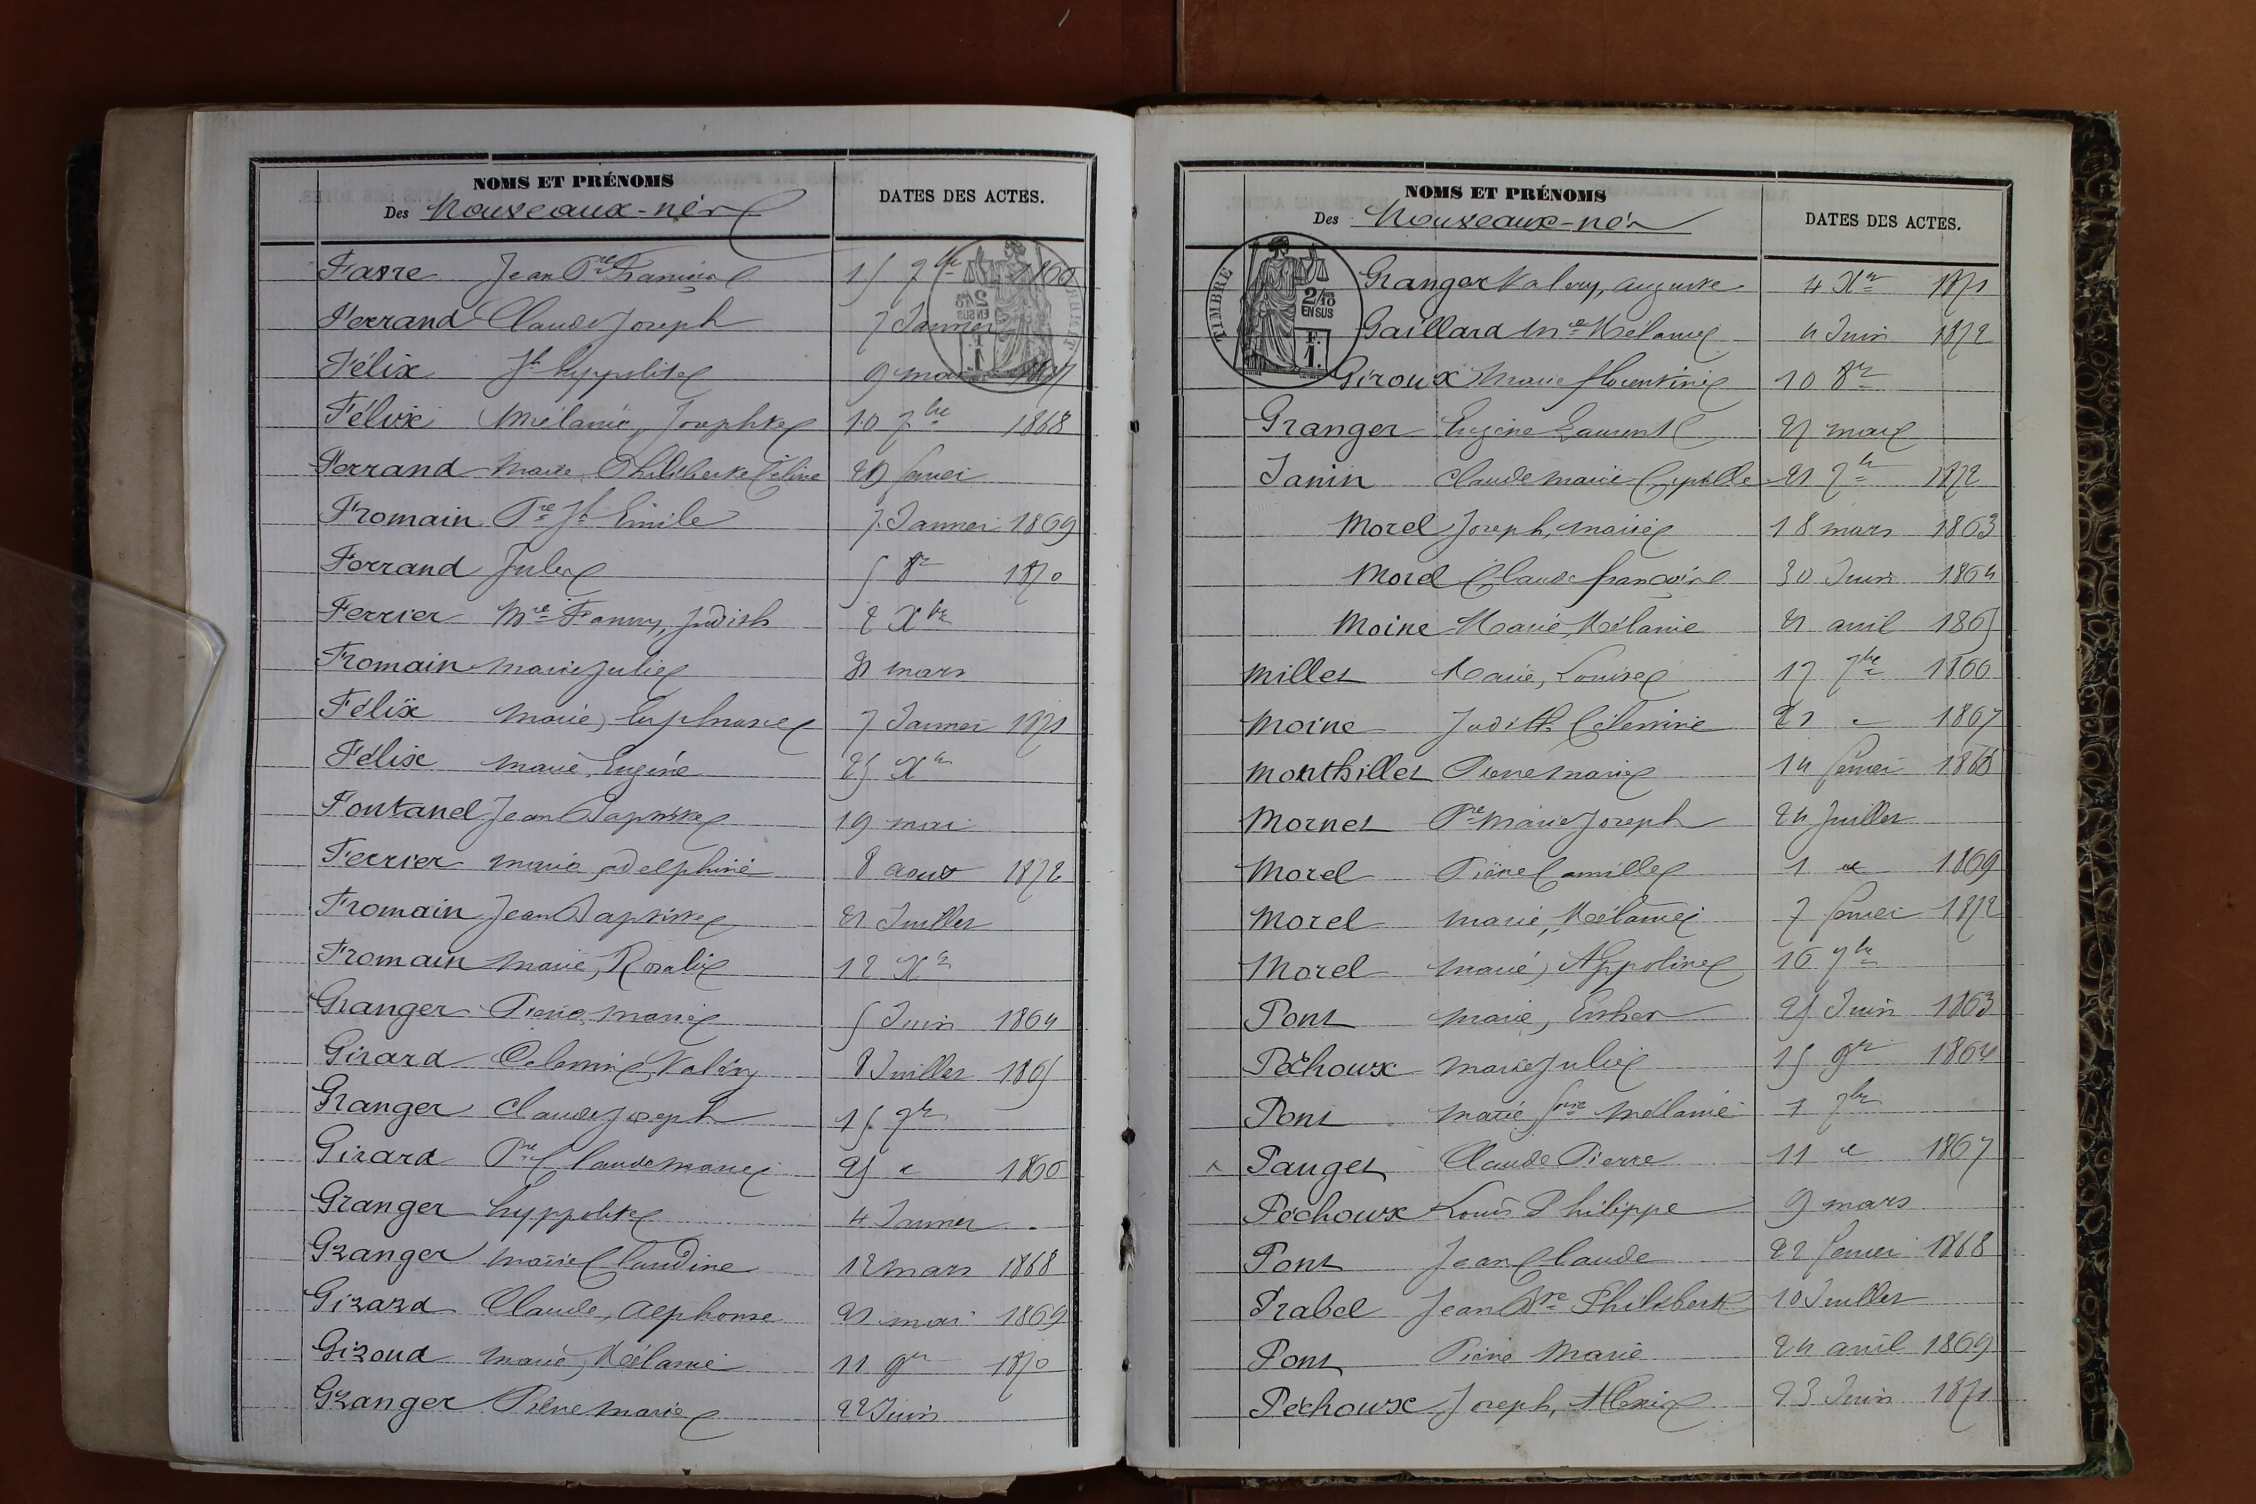 NOMS ET PRÉNOMS
Des Nouveaux-nés
DATES DES ACTES.
Favre Jean Pre François 15 7bre 1866
Ferrand Claude Joseph 7 Janvier
Félix Jh hyppolite 9 mai 1867
Félix Mélanie, Josephte 10 7bre 1868
Ferrand Marie Philiberte Céline 29 févrei
Fromain Pre Jh Emile 7 Janvier 1869
Ferrand Jules 5 8re 1870
Ferrier Mie Fanny, Judith 2 Xbre
Fromain Marie Julie 21 mars
Félix Marie, Euphrasie 7 Janvier 1871
Félix Marie, Eugénie 25 Xre
Fontanel Jean Baptiste 19 mai
Ferrier Marie, adelphine 8 aout 1872
Fromain Jean Baptiste 21 Juillet
Fromain Marie, Rosalie 12 Xre
Granger Pierre, Marie 5 Juin 1864
Girard Célestine Valéry 8 Juillet 1865
Granger Claude Joseph 15 7bre
Girard Pre Claude Marie 25 " 1866
Granger hyppolite 4 Janvier
Granger Marie Claudine 12 mars 1868
Girard Claude, Alphonse 21 mai 1869
Giroud Marie, Mélanie 11 9re 1870
Granger Pierre Marie 22 Juin
NOMS ET PRÉNOMS
Des Nouveaux-nés
DATES DES ACTES.
TIMBRE
2/10 EN SUS
F. 1.
Granger Valery, auguste 4 Xre 1871
Gaillard Mie Mélanie 4 Juin 1872
Giroux Marie florentine 10 8re
Granger Eugène Laurent 21 mai
Janin Claude Marie 21 7bre 1872
Morel Joseph, Marie 18 mars 1863
Morel Claude françoise 30 Juin 1864
Moine Marie, Mélanie 21 avril 1865
Millet Marie, Louise 17 7bre 1866
Moine Judith Célestine 21 " 1867
Monthillet Pierre Marie 14 févrei 1868
Mornet Pre Marie Joseph 24 Juillet
Morel Pierre Camille 1 " 1869
Morel Marie, Mélanie 7 févrei 1872
Morel Marie, Appoline 16 7bre
Pont Marie, Esther 25 Juin 1863
Péchoux Marie Julie 15 9re 1864
Pont Marie Mélanie 1 7bre
Pauget Claude Pierre 11 " 1867
Péchoux Louis Philippe 9 mars
Pont Jean Claude 22 févrei 1868
Prabel Jean Philibert 10 Juillet
Pont Pierre Marie 24 avril 1869
Péchoux Joseph, Alexis 23 Juin 1871